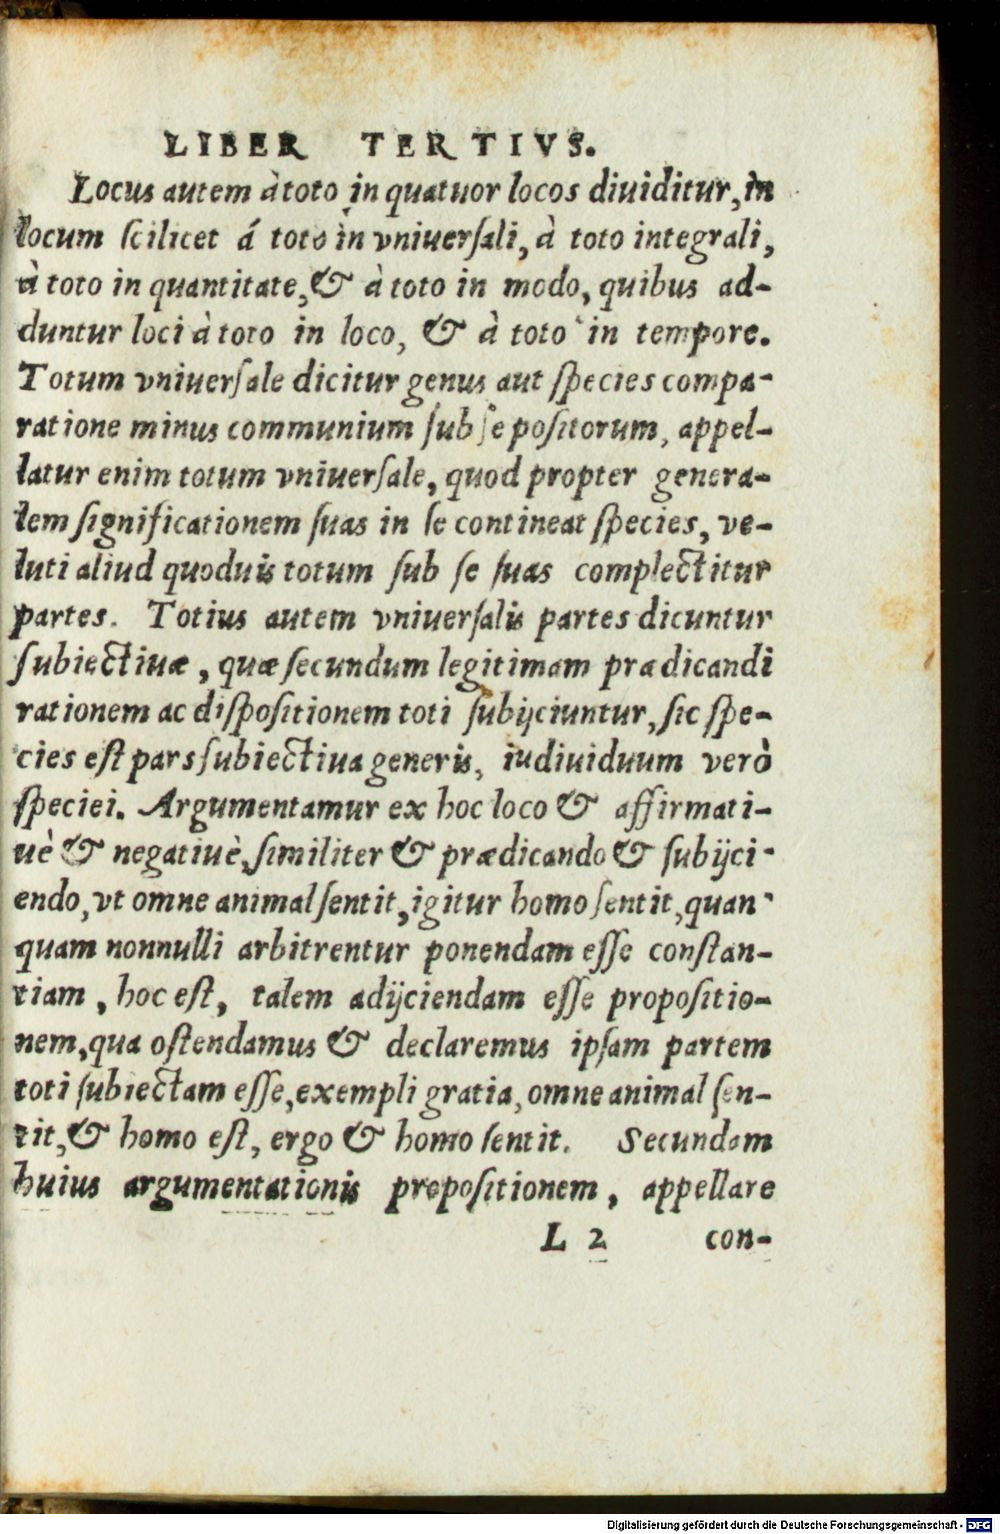 LIBER TERTIVS.
Locus autem à toto in quatuor locos diuiditur, in
locum scilicet á toto in vniuersali, à toto integrali,
à toto in quantitate, & à toto in modo, quibus ad-
duntur loci à toto in loco, & à toto in tempore.
Totum vniuersale dicitur genus aut species compa-
ratione minus communium sub se positorum, appel-
latur enim totum vniuersale, quod propter genera-
lem significationem suas in se contineat species, ve-
luti aliud quoduis totum sub se suas complectitur
partes. Totius autem vniuersalis partes dicuntur
subiectiuæ, quæ secundum legitimam prædicandi
rationem ac dispositionem toti subijciuntur, sic spe-
cies est pars subiectiua generis, iudiuiduum verò
speciei. Argumentamur ex hoc loco & affirmati-
uè & negatiuè, similiter & prædicando & subijci-
endo, vt omne animal sentit, igitur homo sentit, quan-
quam nonnulli arbitrentur ponendam esse constan-
tiam, hoc est, talem adijciendam esse propositio-
nem, qua ostendamus & declaremus ipsam partem
toti subiectam esse, exempli gratia, omne animal sen-
tit, & homo est, ergo & homo sentit. Secundam
huius argumentationis propositionem, appellare
L 2 con-
Digitalisierung gefördert durch die Deutsche Forschungsgemeinschaft - DFG